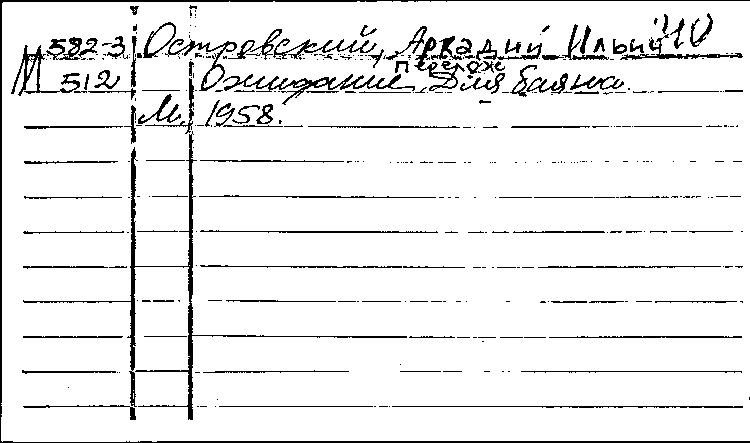 582-3 Островский, Аркадий Ильич
М 512 Ожидание. Перелож. Для баяна.
М., 1958.